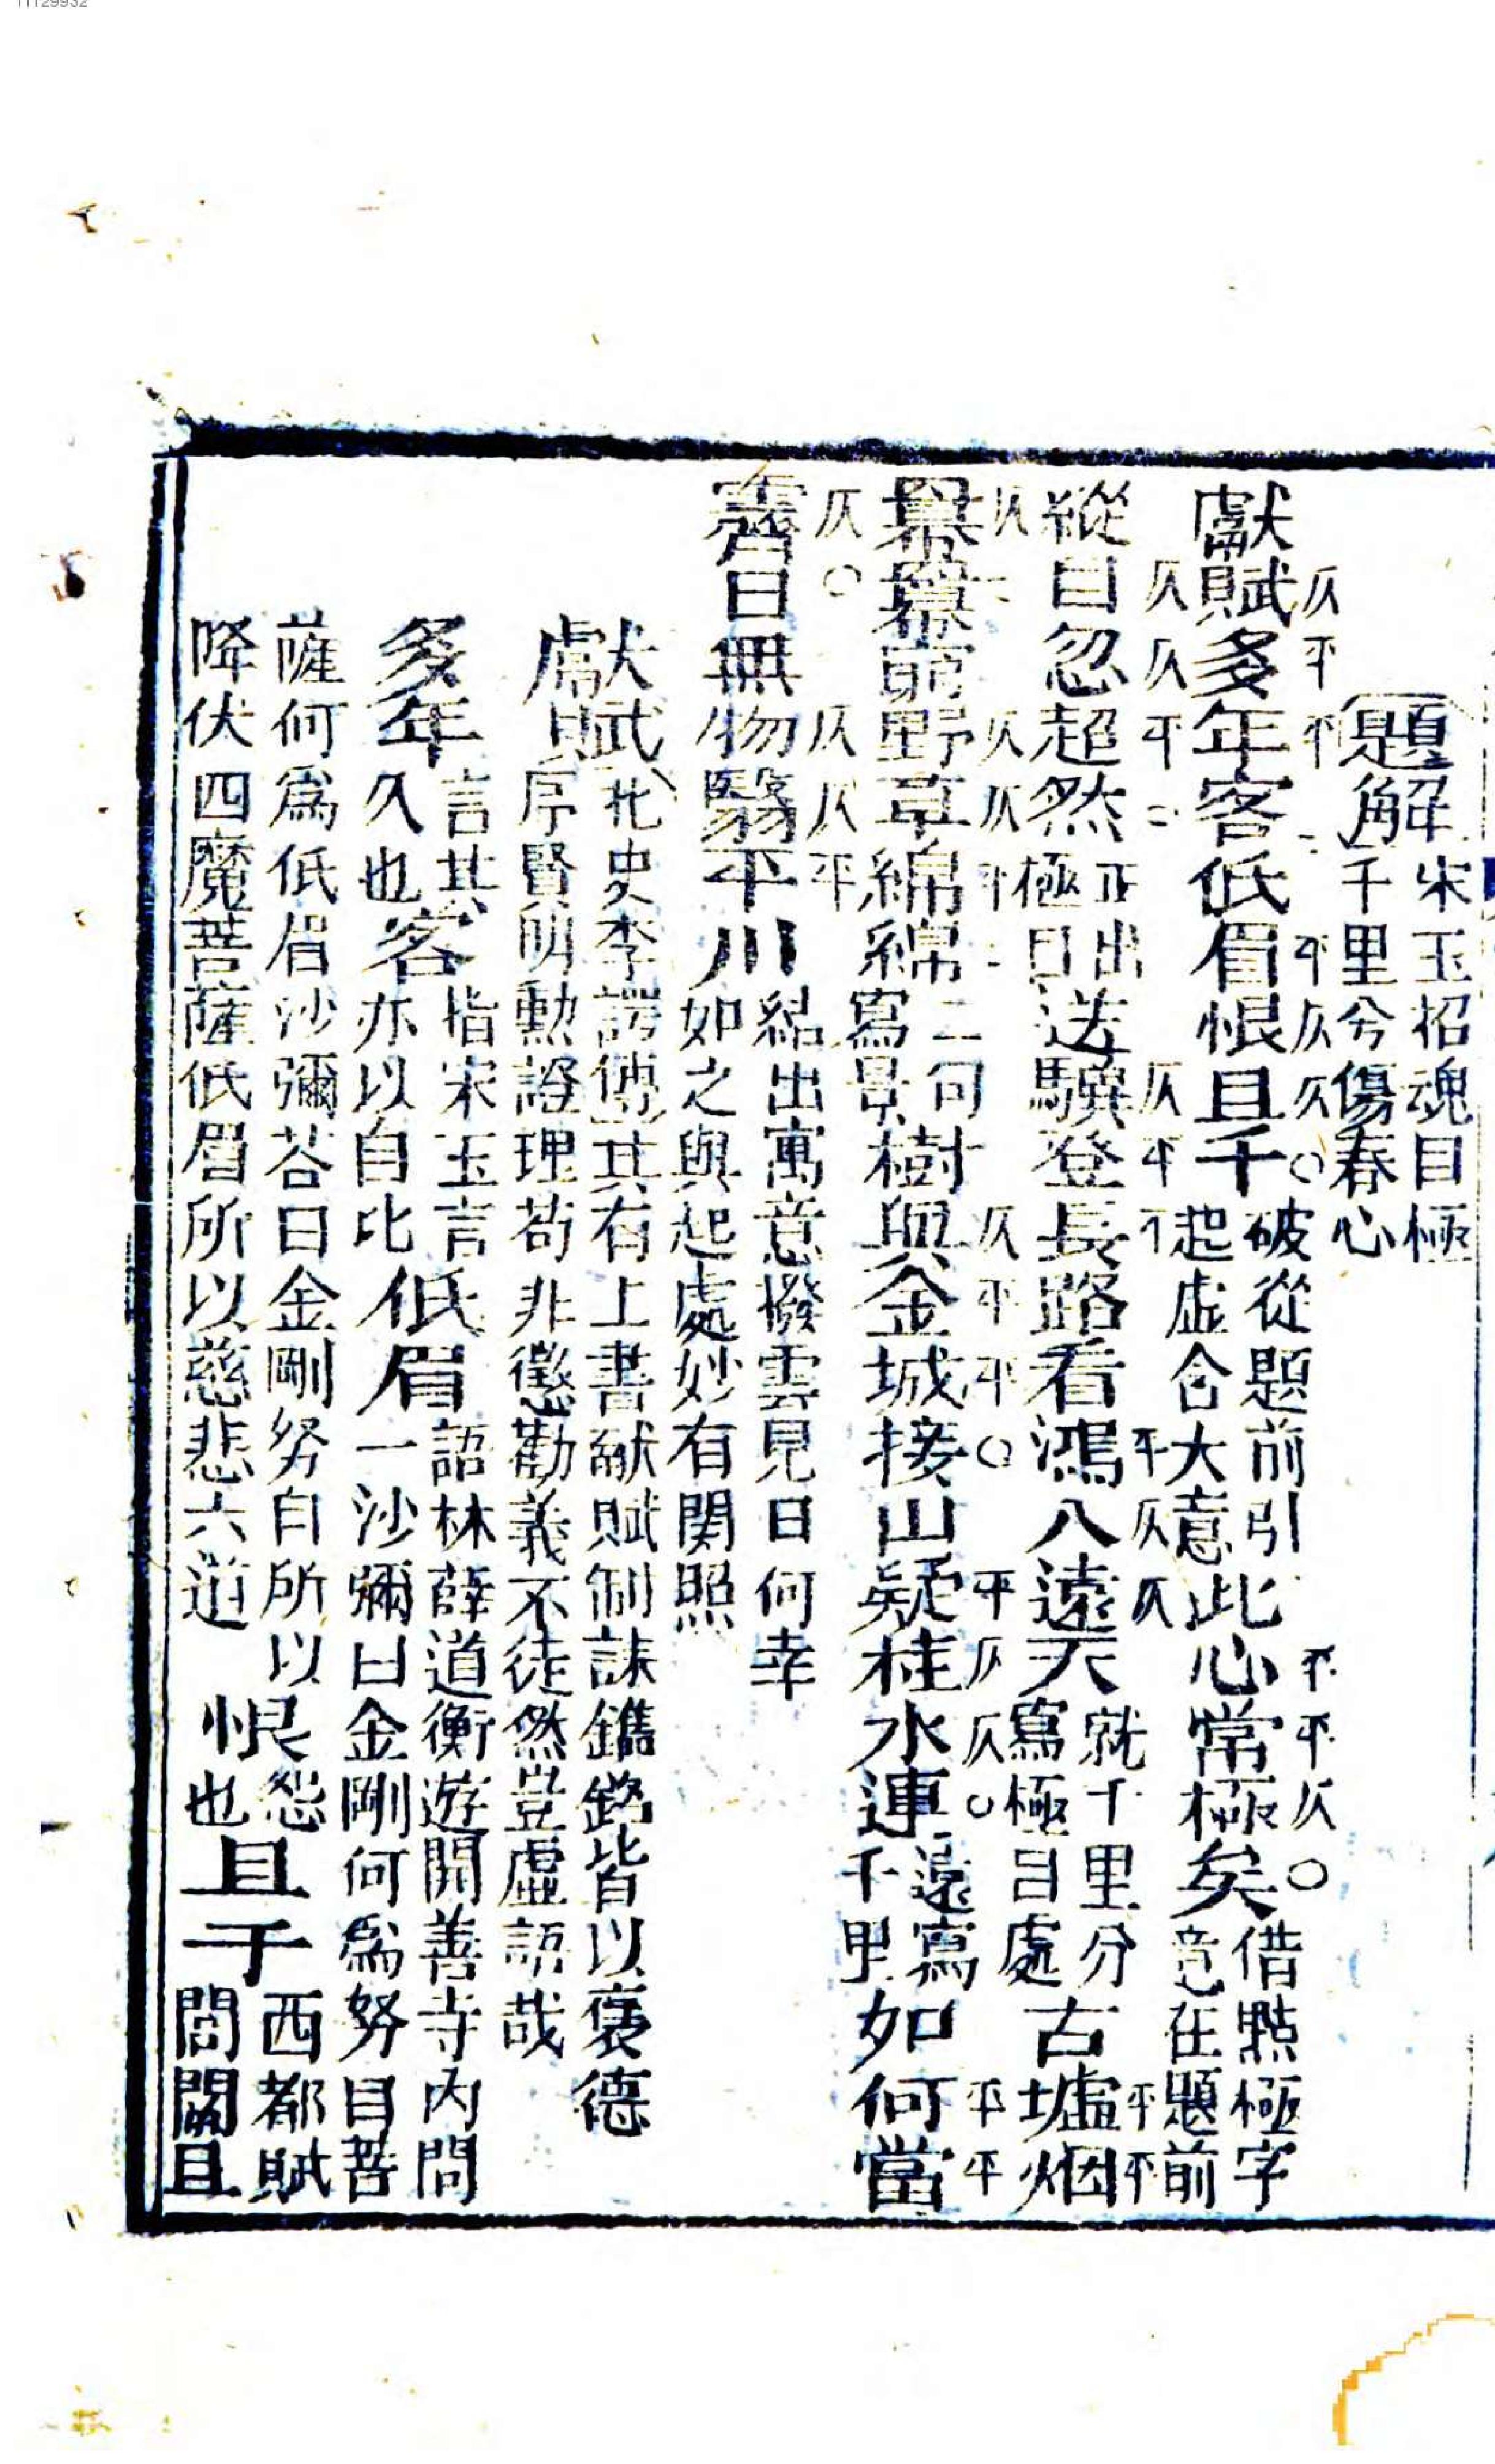 11129932
題解 宋玉招魂目極
千里兮傷春心
獻賦多年客低眉恨且千 破從題前引 起虛合大意 此心常極矣 借點極字 意在題前
縱目忽超然 正出 極目 送驥登長路看鴻入遠天 就千里分 寫極目處 古墟烟
冪冪窮野草綿綿 二句 寫景 樹與金城接山疑桂水連 遠寫 千里 如何當
霽日無物翳平川 結出寓意撥雲見日何幸 如之與起處妙有関照
獻賦 北史李諤傳其有上書獻賦制誄鐫銘皆以褒德
序賢明勲證理苟非懲勸義不徒然豈虛語哉
多年 言其 久也 客 指宋玉言 亦以自比 低眉 語林薛道衡遊開善寺內問
一沙彌曰金剛何為努目菩
薩何爲低眉沙彌荅曰金剛努目所以
降伏四魔菩薩低眉所以慈悲六道 恨 怨 也 且千 西都賦
閭閻且
仄平平 平仄仄 平平仄
仄仄平 仄平平 平仄仄 平平
仄 仄仄平 仄平平 平仄仄 平平
仄 仄仄平